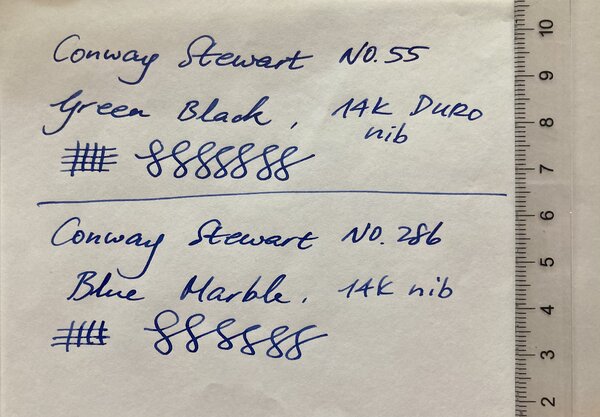 Conway Stewart No. 55
Green Black, 14K DURO
nib
Conway Stewart No. 286
Blue Marble, 14K nib
10
9
8
7
6
5
4
3
2